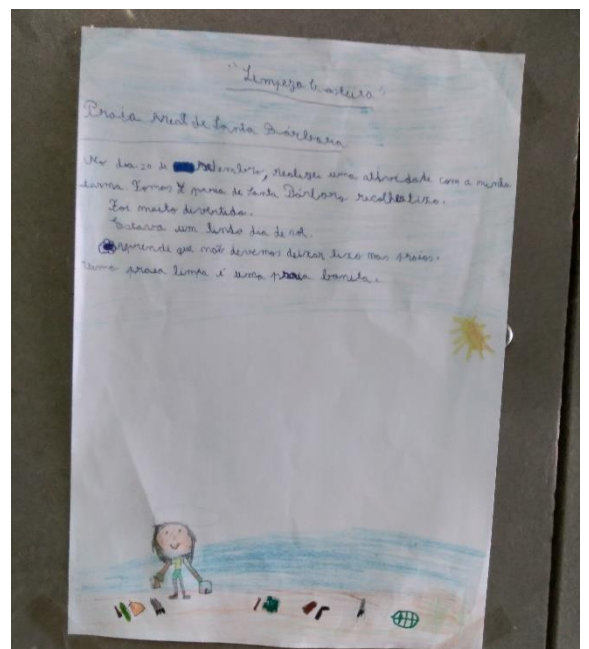 "Limpeza Costeira"
Praia Areal de Santa Bárbara
No dia 20 de setembro, realizei uma atividade com a minha
turma. Fomos à praia de Santa Bárbara recolher lixo.
Foi muito divertido.
Estava um lindo dia de sol.
Aprendi que não devemos deixar lixo nas praias.
Uma praia limpa é uma praia bonita.